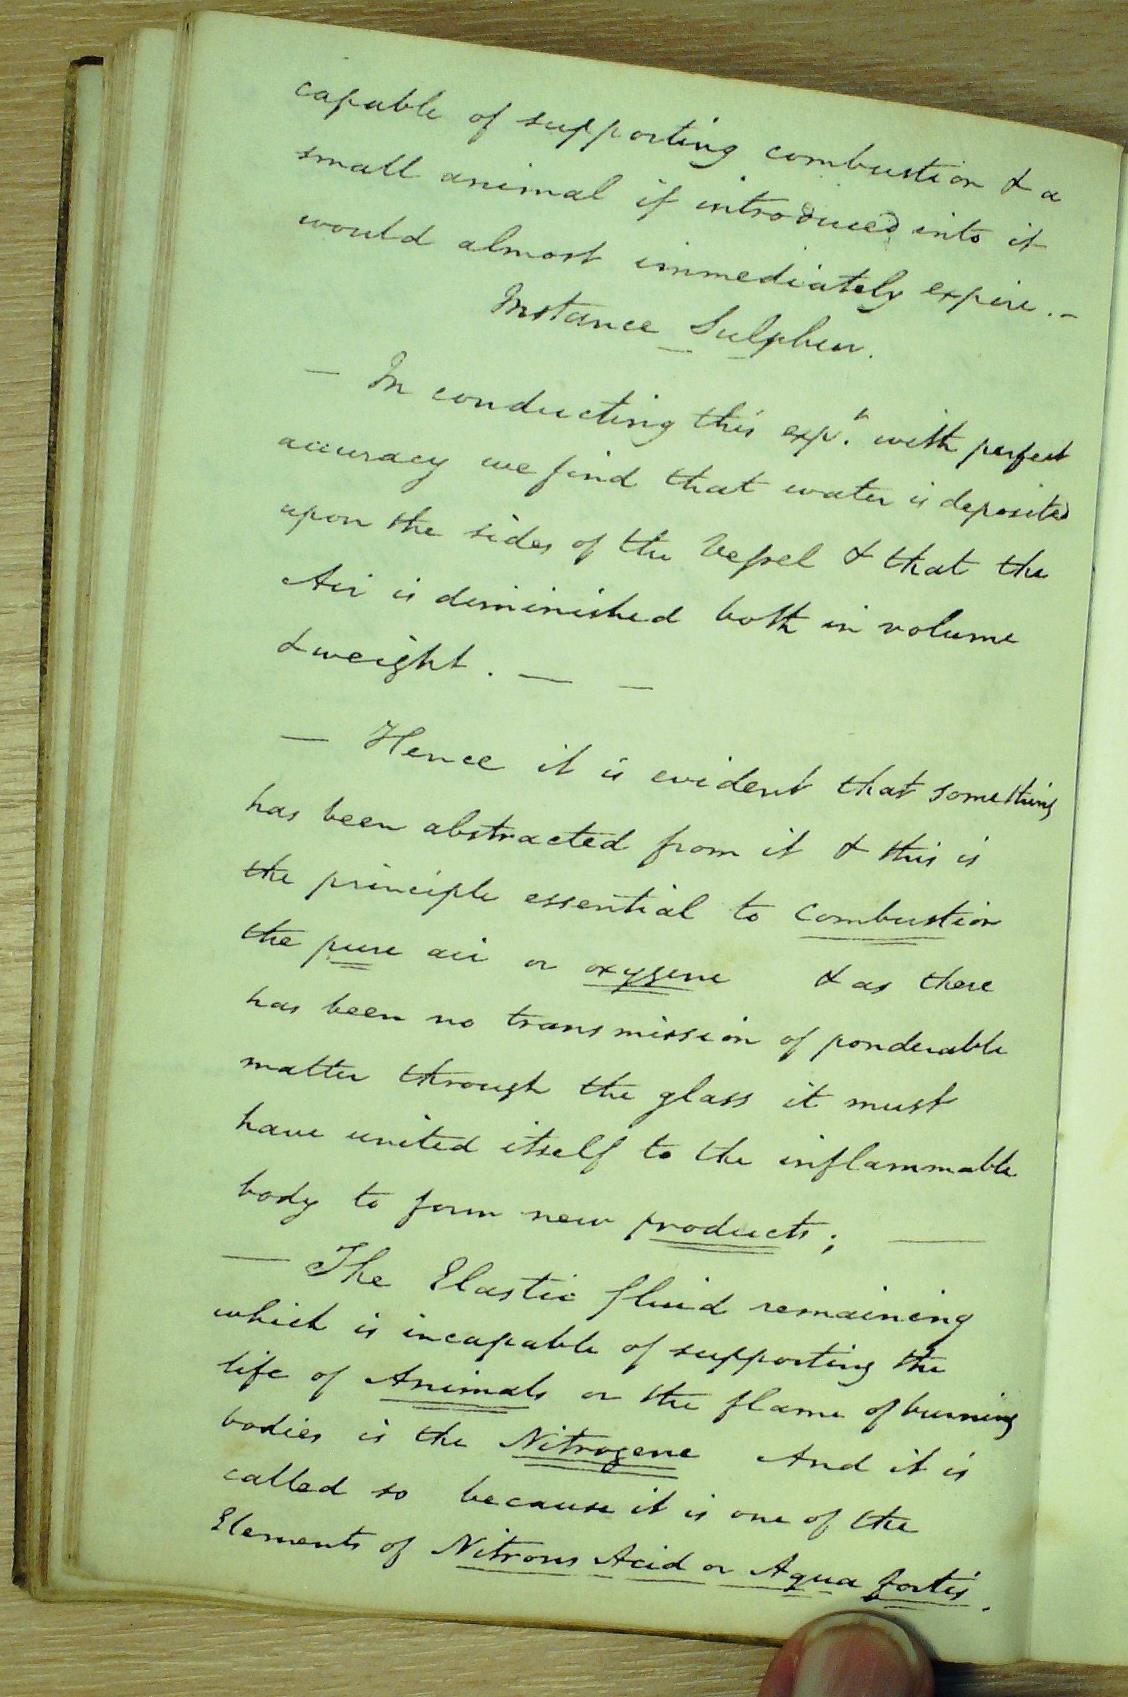 capable of supporting combustion & a
small animal if introduced into it
would almost immediately expire. -
Instance Sulphur.
— In conducting this exp.t with perfect
accuracy we find that water is deposited
upon the sides of the Vessel & that the
Air is diminished both in volume
& weight. — —
— Hence it is evident that something
has been abstracted from it & this is
the principle essential to combustion
the pure air or oxygene & as there
has been no transmission of ponderable
matter through the glass it must
have united itself to the inflammable
body to form new products; —
— The Elastic fluid remaining
which is incapable of supporting the
life of Animals or the flame of burning
bodies is the Nitrogene And it is
called so because it is one of the
Elements of Nitrous Acid or Aqua fortis.